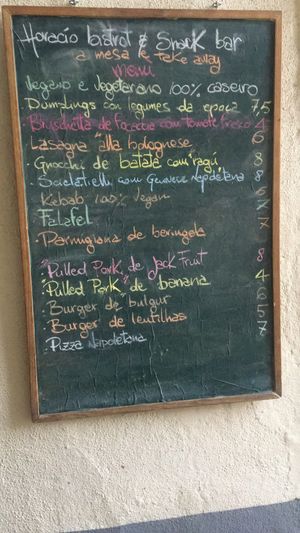 Horacio bistrot & Snack bar
a mesa le take away
menu
vegano e vegeterano 100% caseiro
Dumplings con legumes da epoca 7,5
Bruschetta de focaccia com tomate fresco 4
Lasagna "alla bolognese" 6
Gnocchi de batate com "ragú" 8
Scialatielli com Genovese Napoletana 8
Kebab 100% vegan 6
Falafel 7
Parmigiana de beringela 7
"Pulled Pork" de Jack Fruit 8
"Pulled Pork" de banana 4
Burger de bulgur 6
Burger de lentilhas 5
Pizza Napoletana 7